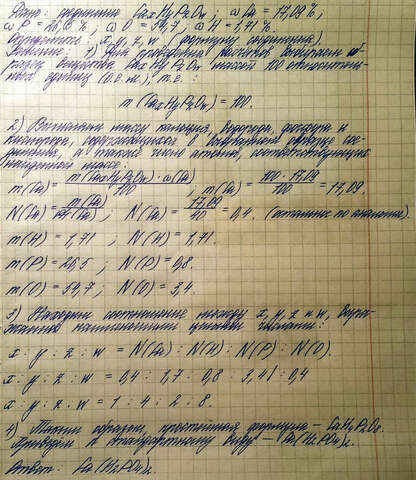 Дано: соединение CaxHyPzOw; ω Ca = 17,09%;
ω P = 26,5 %; ω O = 54,7; ω H = 1,71 %.
Определить: x, y, z, w (формулу соединения).
Решение: 1) Для проведения расчетов выбираем об-
разец вещества CaxHyPzOw массой 100 относитель-
ных единиц (о.е.м.), т.е.:
m (CaxHyPzOw) = 100.
2) Вычисляем массу кальция, водорода, фосфора и
кислорода, содержащихся в выбранном образце сое-
динения, а также число атомов, соответствующую
найденной массе:
m(Ca) = m(CaxHyPzOw) · ω(Ca) / 100 ; m(Ca) = 100 · 17,09 / 100 = 17,09.
N(Ca) = m(Ca) / Ar(Ca) ; N(Ca) = 17,09 / 40 = 0,4. (остальное по аналогии).
m(H) = 1,71 ; N(H) = 1,71.
m(P) = 26,5 ; N(P) = 0,8.
m(O) = 54,7; N(O) = 3,4.
3) Находим соотношение между x, y, z и w, выра-
женное наименьшими целыми числами:
x : y : z : w = N(Ca) : N(H) : N(P) : N(O).
x : y : z : w = 0,4 : 1,7 : 0,8 : 3,41 : 0,4
x : y : z : w = 1 : 4 : 2 : 8.
4) Таким образом, простейшая формула – CaH4P2O8.
Приведём к стандартному виду – Ca(H2PO4)2.
Ответ: Ca(H2PO4)2.